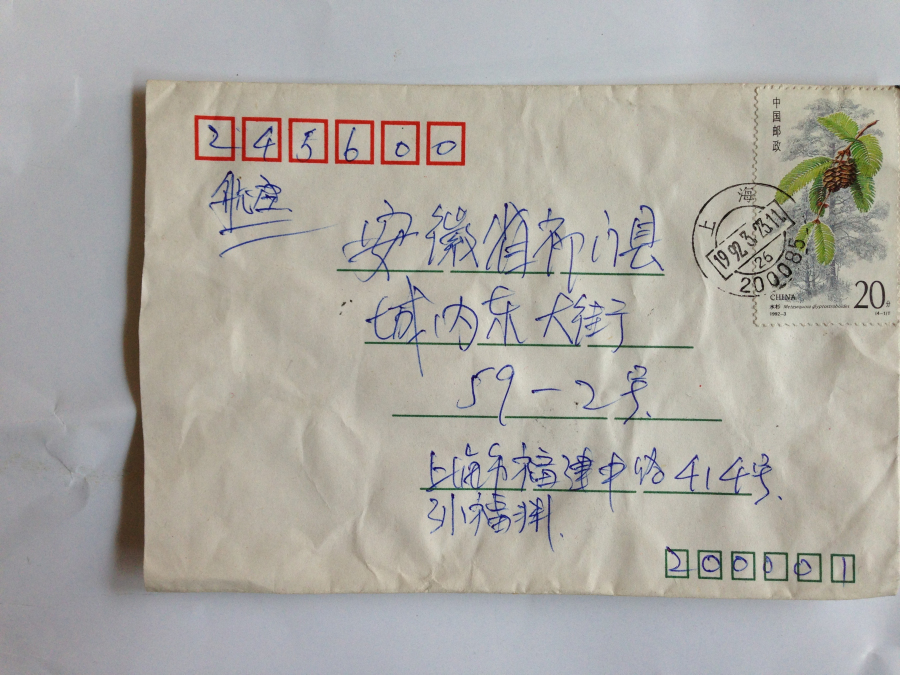 245600
航空
安徽省祁门县
城内东大街
59-2号
上海市福建中路414号
孙福渊
200001
中国邮政
上海
1992.3.23.11
26
200085
CHINA
20分
水杉 Metasequoia glyptostroboides
1992-3
(4-1)T